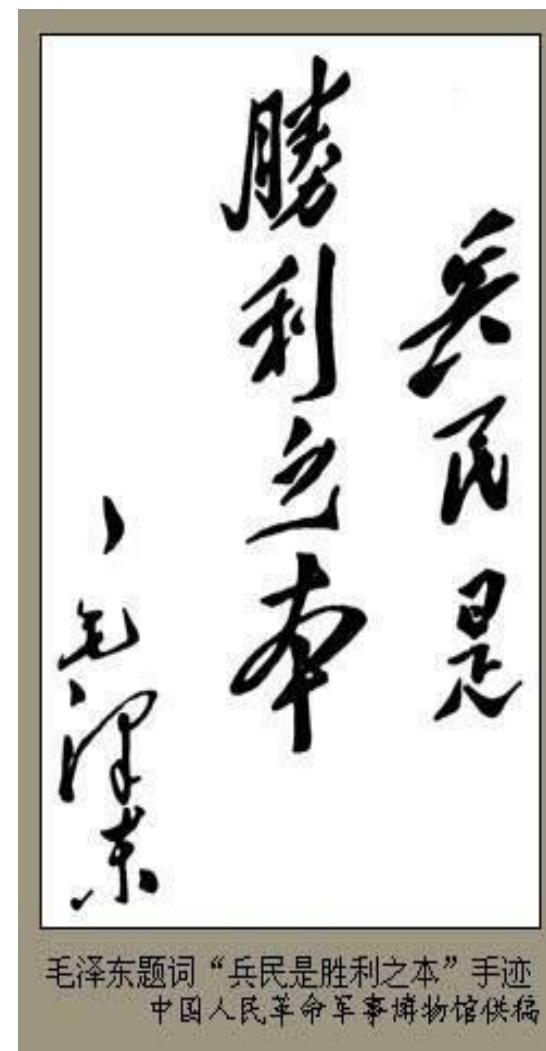 兵民是
勝利之本
毛澤东
毛泽东题词“兵民是胜利之本”手迹
中国人民革命军事博物馆供稿